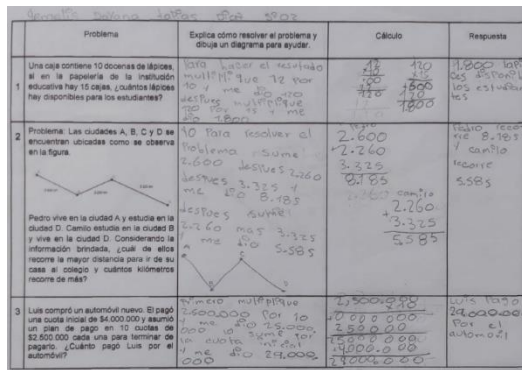 Problema
Explica cómo resolver el problema y
dibuja un diagrama para ayudar.
Cálculo
Respuesta
1
Una caja contiene 10 docenas de lápices,
si en la papelería de la institución
educativa hay 15 cajas, ¿cuántos lápices
hay disponibles para los estudiantes?
Para hacer el resultado
multiplique 12 por
10 y me dio 120
despues multiplique
120 por 15 y me
dio 1.800
120
1800
1.800 lapi
ces disponibl
los estudian
tes
2
Problema: Las ciudades A, B, C y D se
encuentran ubicadas como se observa
en la figura.
Pedro vive en la ciudad A y estudia en la
ciudad D. Camilo estudia en la ciudad B
y vive en la ciudad D. Considerando la
información brindada, ¿cuál de ellos
recorre la mayor distancia para ir de su
casa al colegio y cuántos kilómetros
recorre de más?
Para resolver el
Problema sume
2.600 despues 2.260
despues 3.325 y
me dio 8.185
despues sume
2.260 mas 3.325
y me dio 5.585
2.600
+2.260
3.325
8.185
camilo
2.260
+3.325
5585
Pedro reco
rre 8.185
y camilo
recorre
5.585
3
Luis compró un automóvil nuevo. El pagó
una cuota inicial de $4.000.000 y asumió
un plan de pago en 10 cuotas de
$2.500.000 cada una para terminar de
pagarlo. ¿Cuánto pagó Luis por el
automóvil?
Primero multiplique
Por 10
y me dio 25.000.
000 y sume por
la cuota inicial
y me dio 29.000.
000
Luis pago
29.000.00
Por el
automovil